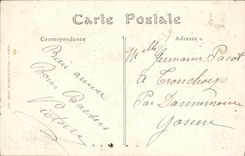 Carte Postale
Correspondance
Adresse
Bien arrivée
Bons Baisers
Victorine
Melle Germaine Pacot
À Tronchoy
Par Dannemoine
Yonne